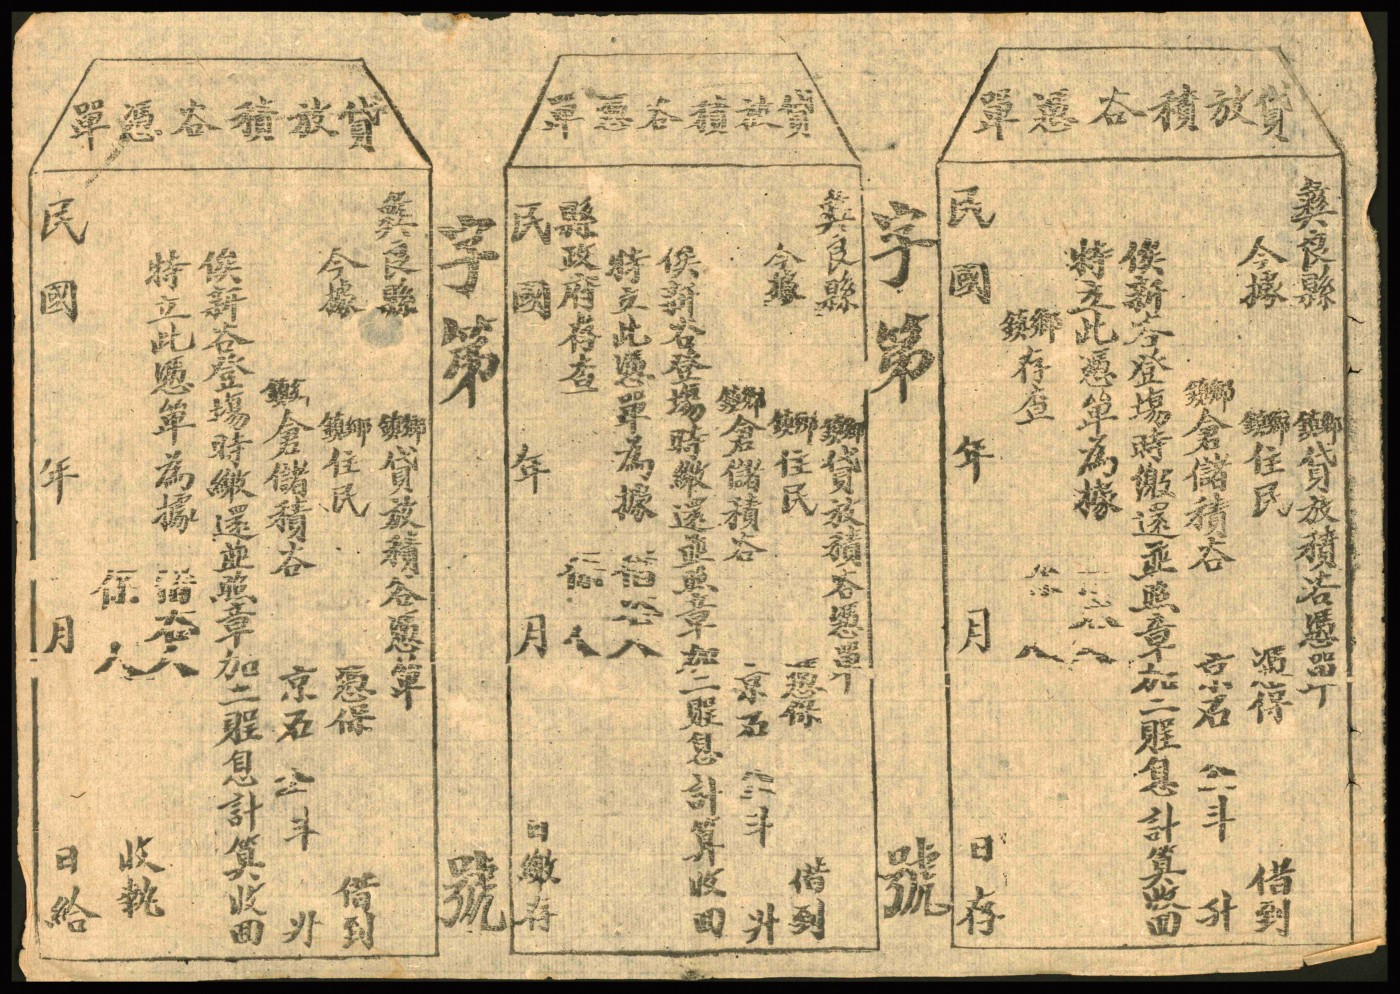 貸放積谷憑單
彝良縣 鄉鎮貸放積谷憑單
今據 鄉鎮住民 憑保 借到
鄉鎮倉儲積谷 京石 斗 升
俟新谷登塲時繳還並照章加二賍息計算收回
特立此憑單為據 人
鄉鎮存查 人
民國 年 月 日存
字第 號
貸放積谷憑單
彝良縣 鄉鎮貸放積谷憑單
今據 鄉鎮住民 憑保 借到
鄉鎮倉儲積谷 京石 斗 升
俟新谷登塲時繳還並照章加二賍息計算收回
特立此憑單為據 借谷人
縣政府存查 保人
民國 年 月 日繳存
字第 號
貸放積谷憑單
彝良縣 鄉鎮貸放積谷憑單
今據 鄉鎮住民 憑保 借到
鄉鎮倉儲積谷 京石 斗 升
俟新谷登塲時繳還並照章加二賍息計算收回
特立此憑單為據 借谷人
保人 收執
民國 年 月 日給